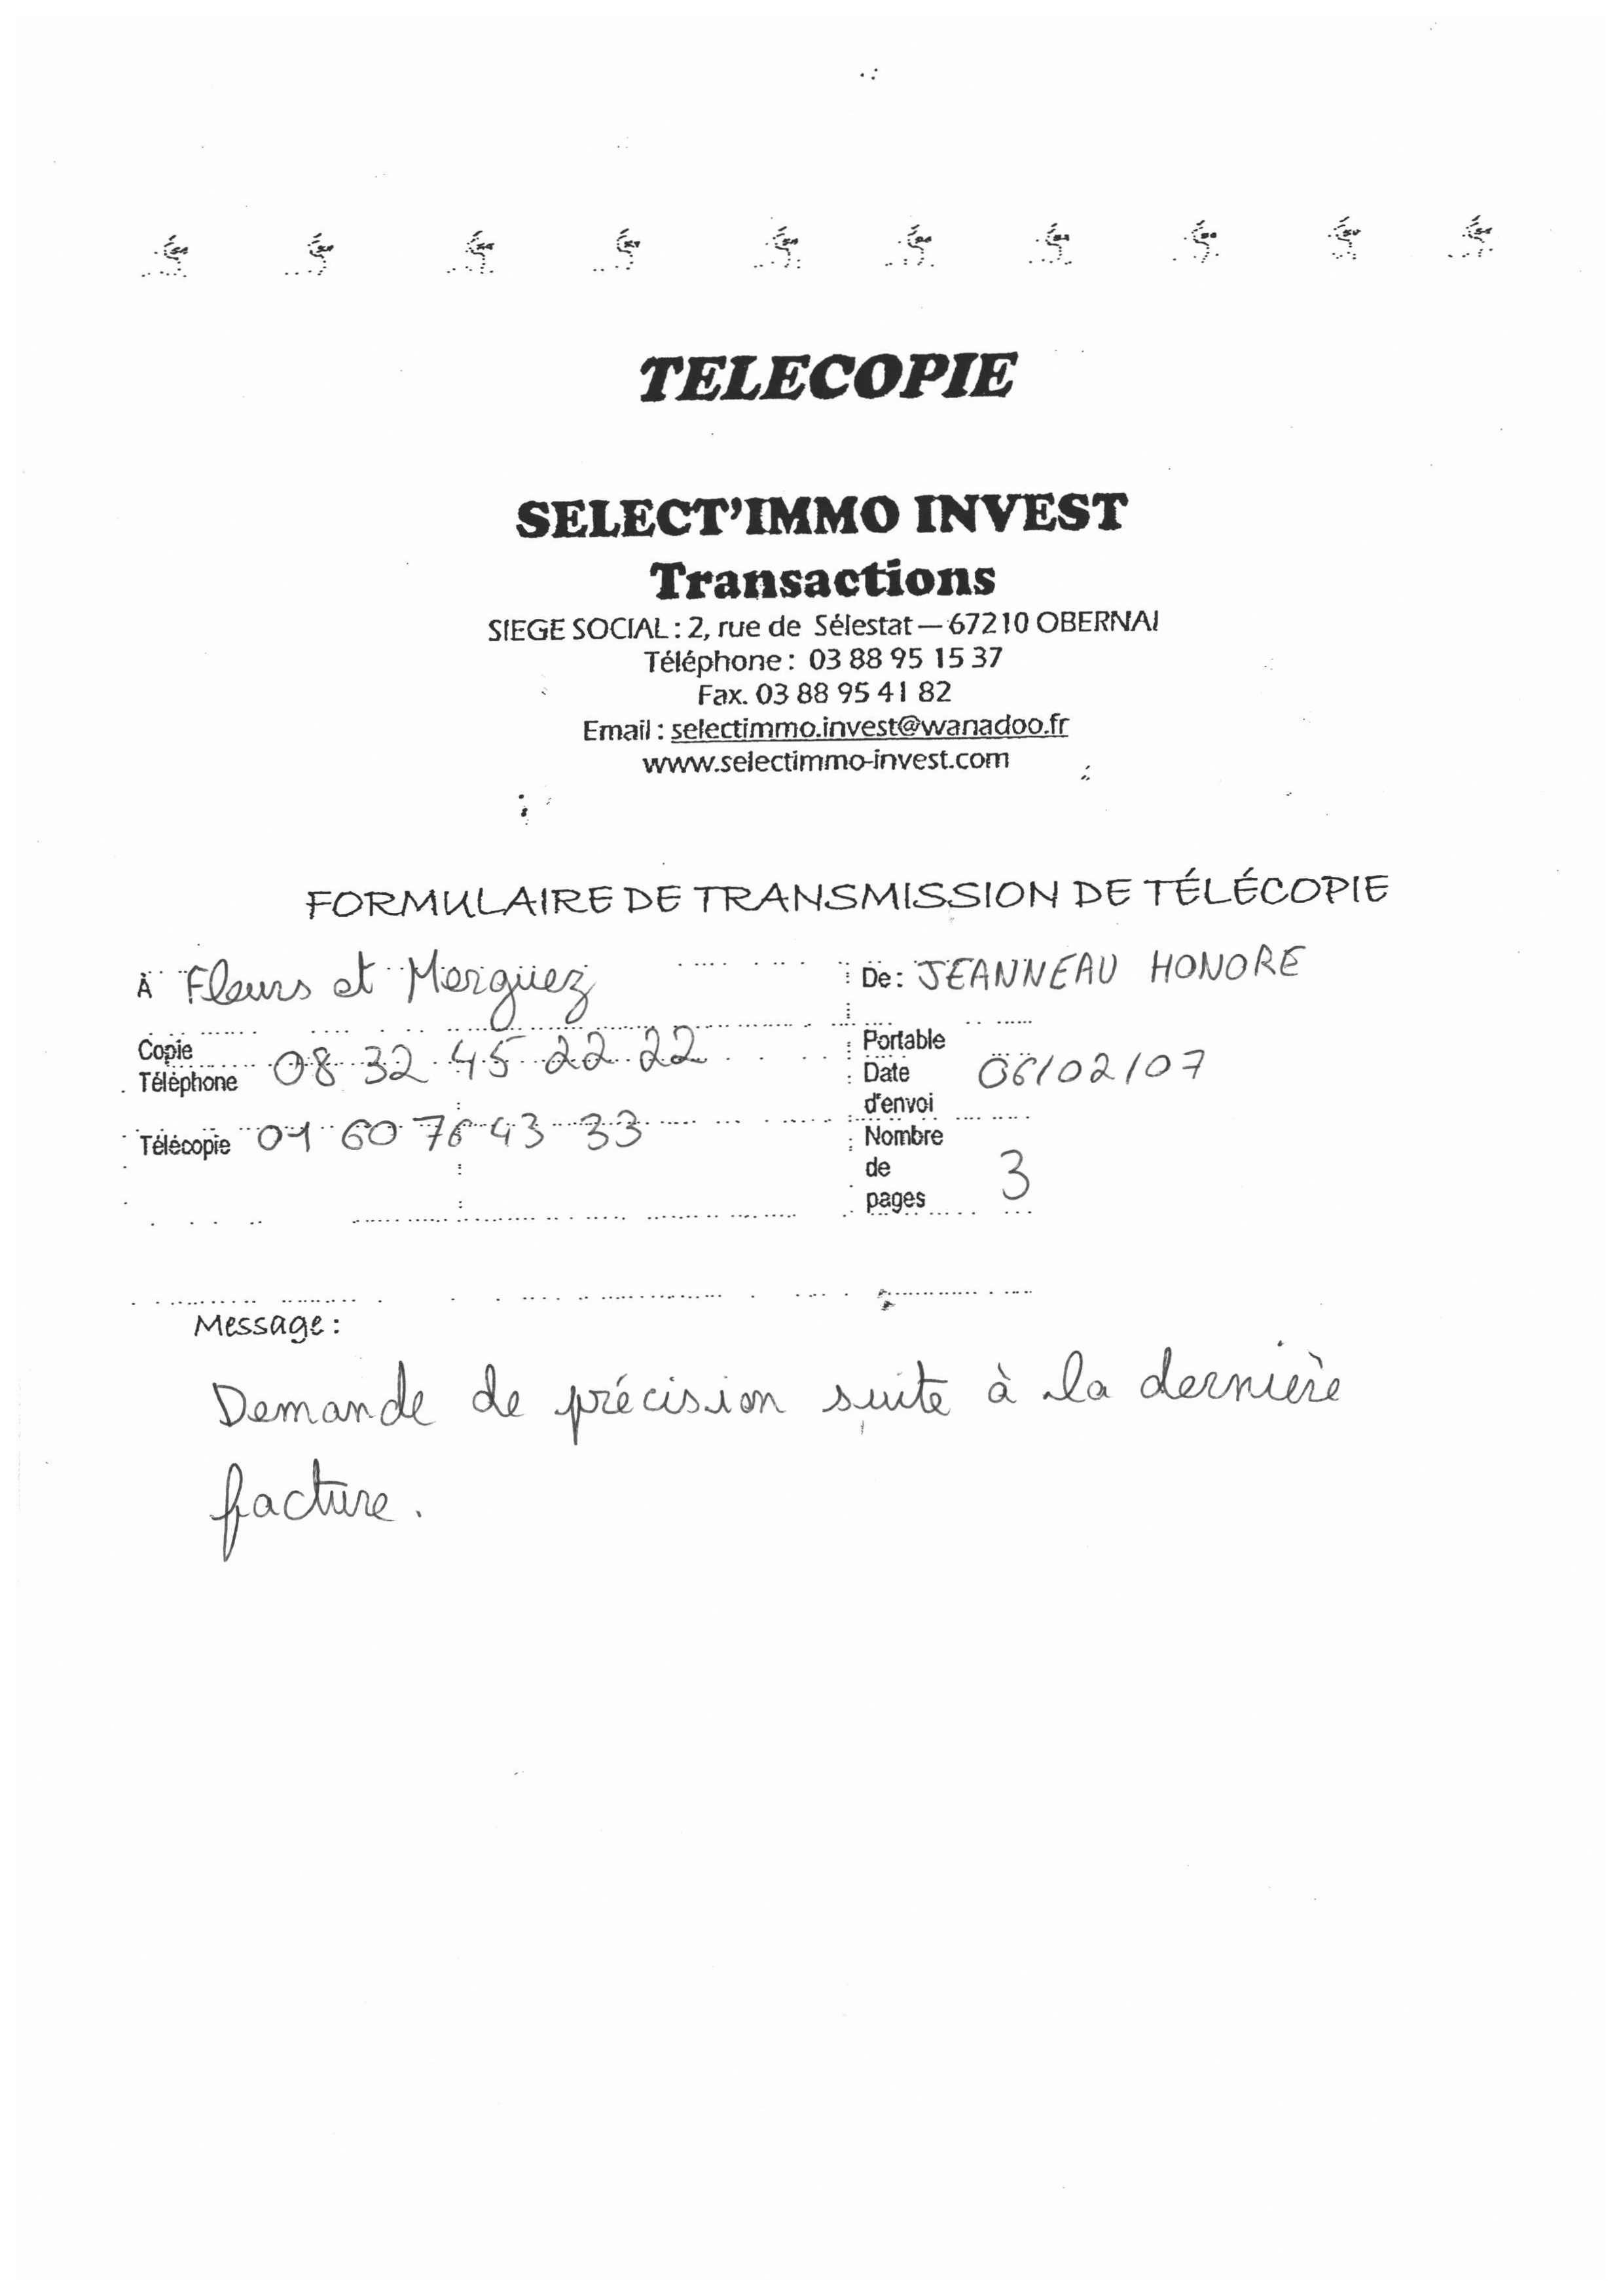 TELECOPIE
SELECT'IMMO INVEST
Transactions
SIEGE SOCIAL : 2, rue de Sélestat – 67210 OBERNAI
Téléphone : 03 88 95 15 37
Fax. 03 88 95 41 82
Email : selectimmo.invest@wanadoo.fr
www.selectimmo-invest.com
FORMULAIRE DE TRANSMISSION DE TÉLÉCOPIE
À Fleurs et Merguez
De : JEANNEAU HONORE
Copie
Téléphone 08 32 45 22 22
Portable
Date
d'envoi 06/02/07
Télécopie 01 60 76 43 33
Nombre
de
pages 3
Message :
Demande de précision suite à la dernière
facture.